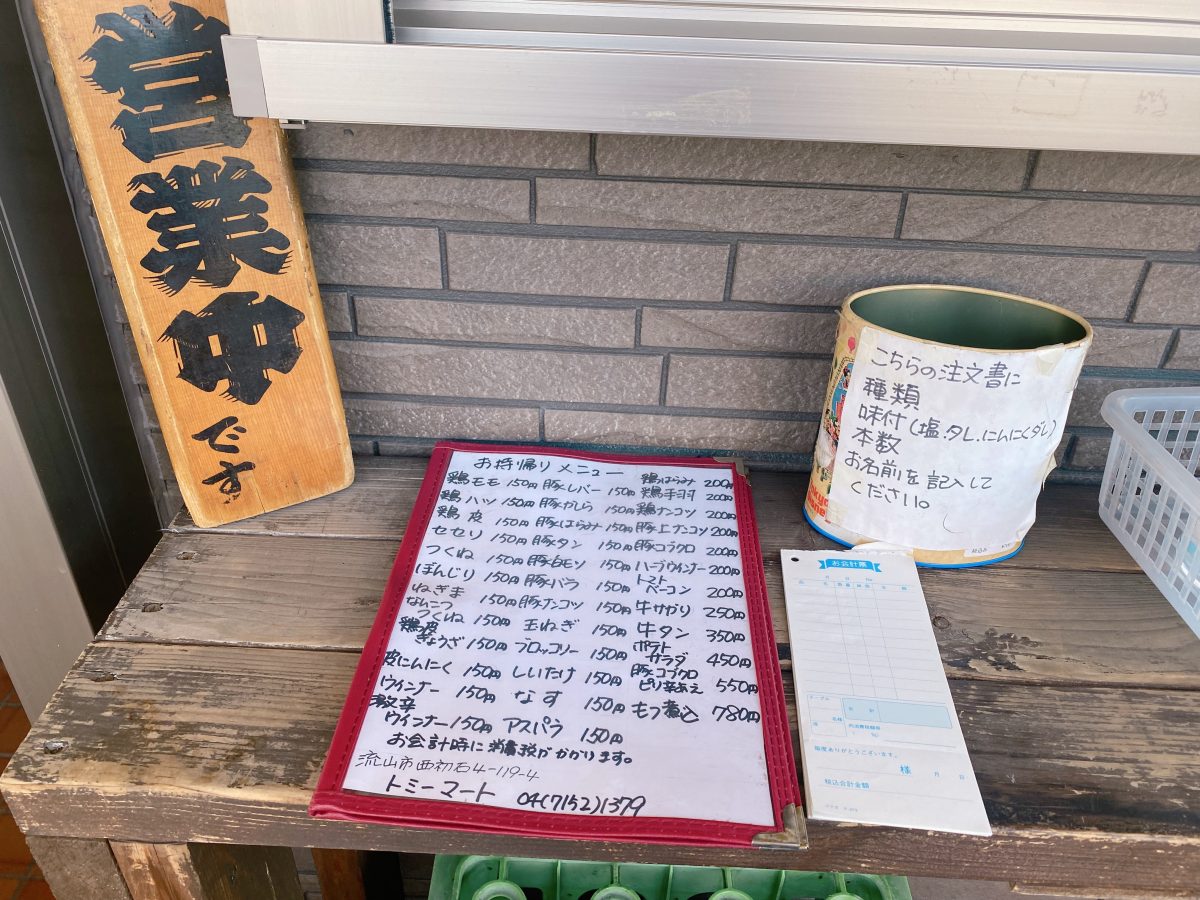 営業中です
お持帰りメニュー
鶏モモ 150円 豚レバー 150円 鶏はらみ 200円
鶏ハツ 150円 豚かしら 150円 鶏手羽 200円
鶏皮 150円 豚はらみ 150円 鶏ナンコツ 200円
セセリ 150円 豚タン 150円 豚上ナンコツ 200円
つくね 150円 豚白モツ 150円 豚コブクロ 200円
ぼんじり 150円 豚バラ 150円 ハーブウインナー 200円
ねぎま 150円 豚ナンコツ 150円 トマトベーコン 200円
なんこつつくね 150円 玉ねぎ 150円 牛サガリ 250円
鶏皮ぎょうざ 150円 ブロッコリー 150円 牛タン 350円
皮にんにく 150円 しいたけ 150円 ポテトサラダ 450円
ウインナー 150円 なす 150円 豚コブクロピリ辛あえ 550円
激辛ウインナー 150円 アスパラ 150円 もつ煮込 780円
お会計時に消費税がかかります。
流山市西初石4-119-4
トミーマート 04(7152)1379
こちらの注文書に
種類
味付(塩.タレ.にんにくダレ)
本数
お名前を記入して
ください。
お会計票
月 日 No.
品名 数量 単価 金額
合計
様 月 日
毎度ありがとうございます。
税込合計金額